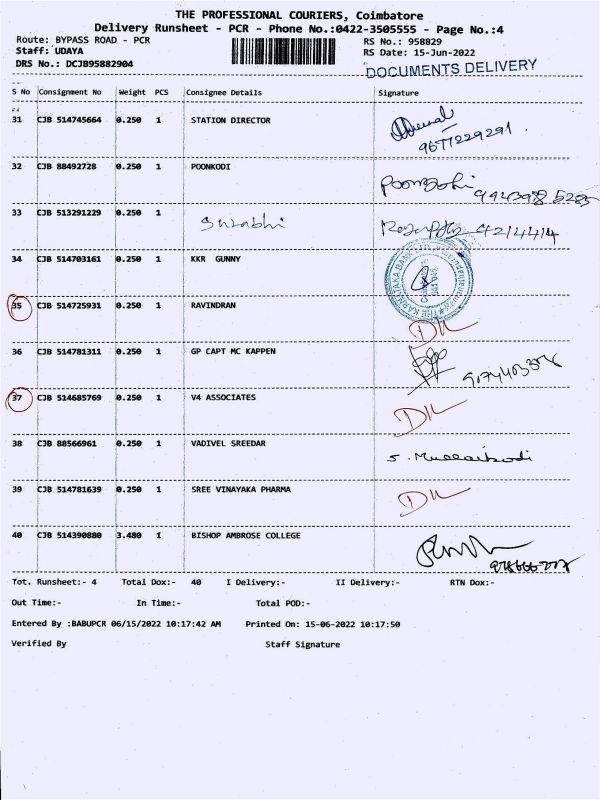 THE PROFESSIONAL COURIERS, Coimbatore
Delivery Runsheet - PCR - Phone No.:0422-3505555 - Page No.:4
Route: BYPASS ROAD - PCR RS No.: 958829
Staff: UDAYA RS Date: 15-Jun-2022
DRS No.: DCJB95882904 DOCUMENTS DELIVERY
S No Consignment No Weight PCS Consignee Details Signature
31 CJB 514745664 0.250 1 STATION DIRECTOR
9677229291
32 CJB 88492728 0.250 1 POONKODI
33 CJB 513291229 0.250 1 Surabhi 4214414
34 CJB 514703161 0.250 1 KKR GUNNY
35 CJB 514725931 0.250 1 RAVINDRAN
DIL
36 CJB 514781311 0.250 1 GP CAPT MC KAPPEN
37 CJB 514685769 0.250 1 V4 ASSOCIATES
DIL
38 CJB 88566961 0.250 1 VADIVEL SREEDAR
S. Mullaikodi
39 CJB 514781639 0.250 1 SREE VINAYAKA PHARMA
DIL
40 CJB 514390880 3.480 1 BISHOP AMBROSE COLLEGE
Tot. Runsheet:- 4 Total Dox:- 40 I Delivery:- II Delivery:- RTN Dox:-
Out Time:- In Time:- Total POD:-
Entered By :BABUPCR 06/15/2022 10:17:42 AM Printed On: 15-06-2022 10:17:50
Verified By Staff Signature